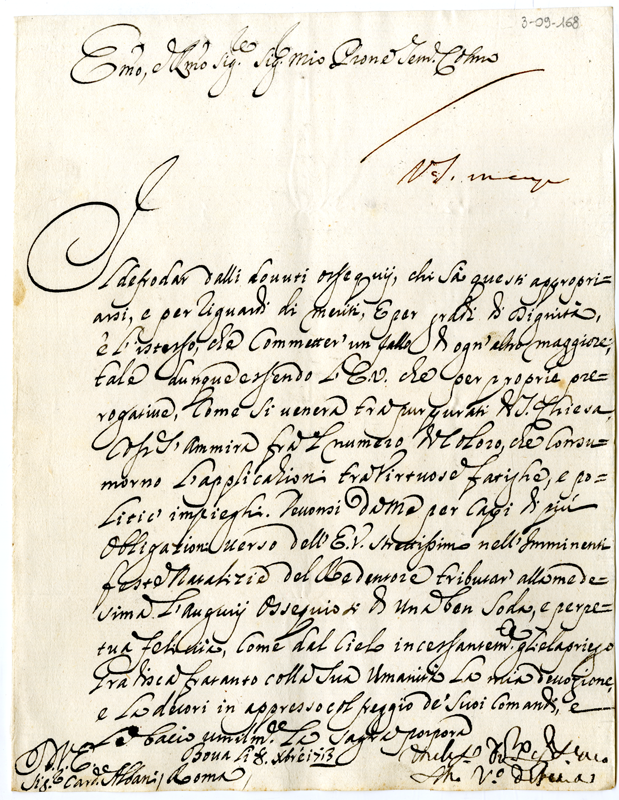 3-09-168
Emo, e Rmo Sig.re Sig.r mio Prone Sem.e Colmo
Il defrodar dalli douuti ossequij, chi sà questi appropri=
arsi, e per riguardi di meriti, e per gradi di Dignità,
è l'istesso, che Commetter' un fallo d'ogn'altro maggiore,
tale dunque essendo L'E.V. che per proprie pre=
rogatiue, Come si uenera tra purpurati di S. Chiesa,
Così s'ammira fra 'l numero di Coloro, che Consu=
morno L'applicationi tra Virtuose fatighe, e po=
litici impieghi. Deuonsi da me per Capi di più
obligationi uerso dell'E.V. strettissime nell'Imminenti
feste Natalizie del Redentore tributar' alla mede=
sima L'Augurij Ossequiosi di una ben Soda, e perpe=
tua felicità, Come dal Cielo incessantem.te gliela priego
Gradisca fratanto colla Sua Umanità La mia deuozione,
e La decori in appresso col freggio de' Suoi Comandi, e
Le bacio umilm.te La Sagra porpora
D.V.E. Boua Li 8. Xbre 1713
Sig.r Card.le Albani / Roma /